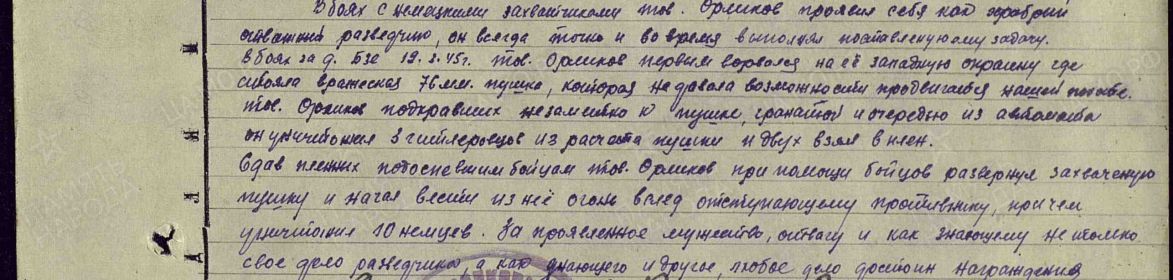 В боях с немецкими захватчиками тов. Орликов проявил себя как храбрый
отважный разведчик, он всегда точно и во время выполнял поставленую ему задачу.
В боях за д. Бзе 19.3.45г. тов. Орликов первым ворвался на её западную окраину где
стояла вражеская 76 мм. пушка, которая не давала возможности продвигаться нашей пехоте.
Тов. Орликов подкравшись незаметно к пушке, гранатой и очередью из автомата
он уничтожил 3 гитлеровцов из расчета пушки и двух взял в плен.
Сдав пленных подоспевшим бойцам тов. Орликов при помощи бойцов развернул захваченую
пушку и начал вести из неё огонь вслед отступающему противнику, причем
уничтожил 10 немцев. За проявленное мужество, отвагу и как знающему не только
свое дело разведчика, а как знающего и другое, любое дело достоин награждения